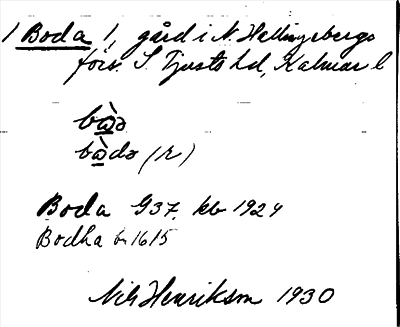 1 Boda 1, gård i N. Hellingsbergs
förs. S. Tjusts hd, Kalmar l
bὼə
bὼdə (r)
Boda G37, kb 1924
Bodha 1615
Nils Henriksson 1930